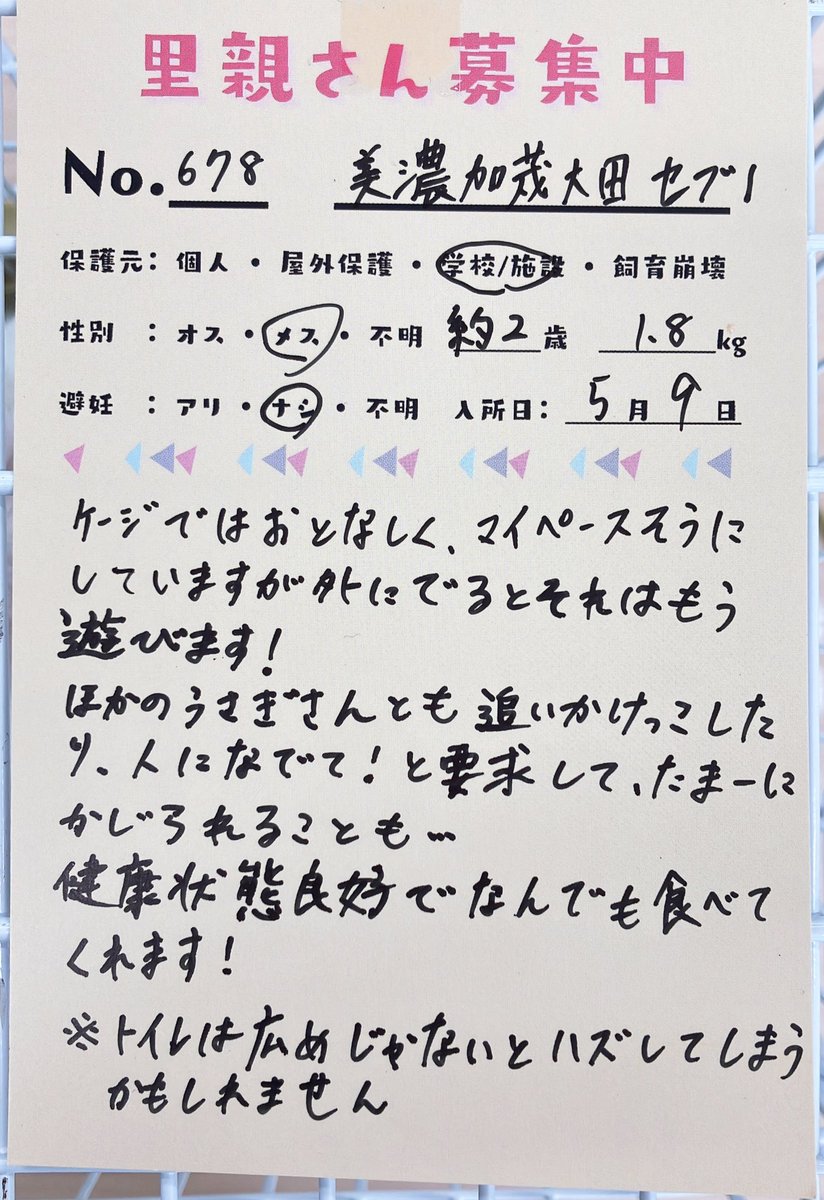 里親さん募集中
No. 678 美濃加茂大田 セブ1
保護元: 個人・屋外保護・学校/施設・飼育崩壊
性別 : オス・メス・不明 約2歳 1.8kg
避妊 : アリ・ナシ・不明 入所日: 5月9日
ケージではおとなしく、マイペースそうに
していますが外にでるとそれはもう
遊びます!
ほかのうさぎさんとも追いかけっこした
り、人になでて!と要求して、たまーに
かじられることも…
健康状態良好でなんでも食べて
くれます!
※トイレは広めじゃないとハズしてしまう
かもしれません